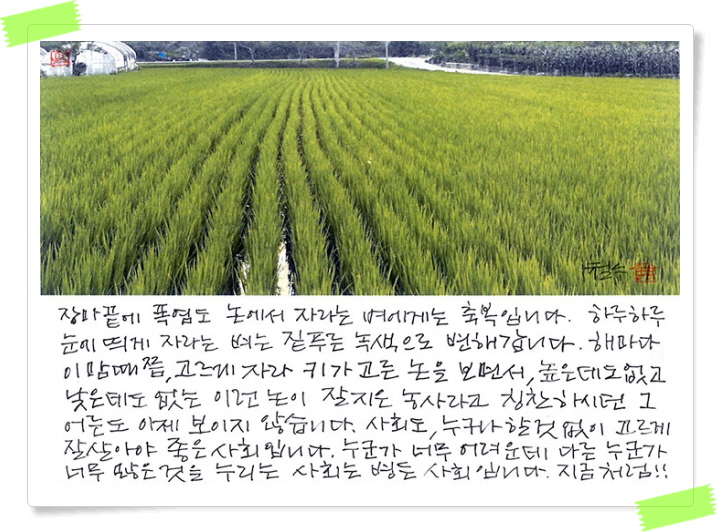 장마끝에 폭염도 논에서 자라는 벼에게는 축복입니다. 하루하루
눈에 띄게 자라는 벼는 짙푸른 녹색으로 변해갑니다. 해마다
이맘때쯤, 고르게 자라 키가 고른 논을 보면서, 높은데도 없고
낮은데도 없는 이런 논이 잘지은 농사라고 칭찬하시던 그
어른도 이제 보이지 않습니다. 사회도, 누구나 할것 없이 고르게
잘살아야 좋은 사회입니다. 누군가 너무 어려운데 다른 누군가
너무 많은 것을 누리는 사회는 병든 사회입니다. 지금처럼!!